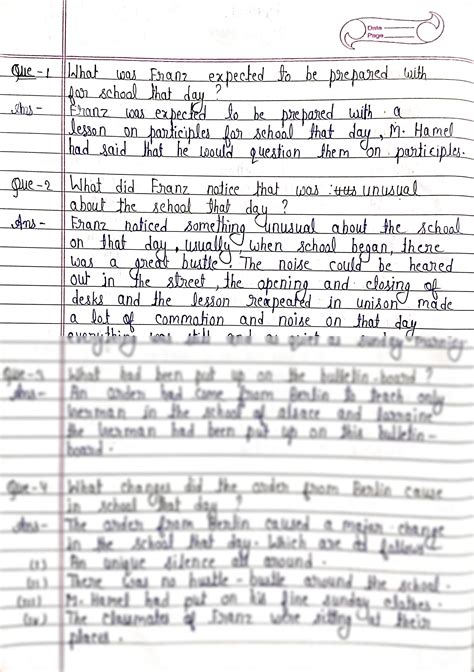 Date
Page
Que-1 What was Franz expected to be prepared with
for school that day ?
Ans- Franz was expected to be prepared with a
lesson on participles for school that day, M. Hamel
had said that he would question them on participles.
Que-2 What did Franz notice that was unusual
about the school that day ?
Ans- Franz noticed something unusual about the school
on that day, usually when school began, there
was a great bustle. The noise could be heared
out in the street, the opening and closing of
desks and the lesson reapeated in unison made
a lot of commation and noise on that day
everything was still and as quiet as sunday morning
Que-3 What had been put up on the bulletin-board ?
Ans- An order had come from Berlin to teach only
German in the school of alsace and lorraine
the German had been put up on this bulletin-
board.
Que-4 What changes did the order from Berlin cause
in school that day ?
Ans- The order from Berlin caused a major change
in the school that day. Which are as follows
(i) An unique silence all around.
(ii) There was no hustle-bustle around the school.
(iii) M. Hamel had put on his fine sunday clothes.
(iv) The classmates of Franz were sitting at their
places.